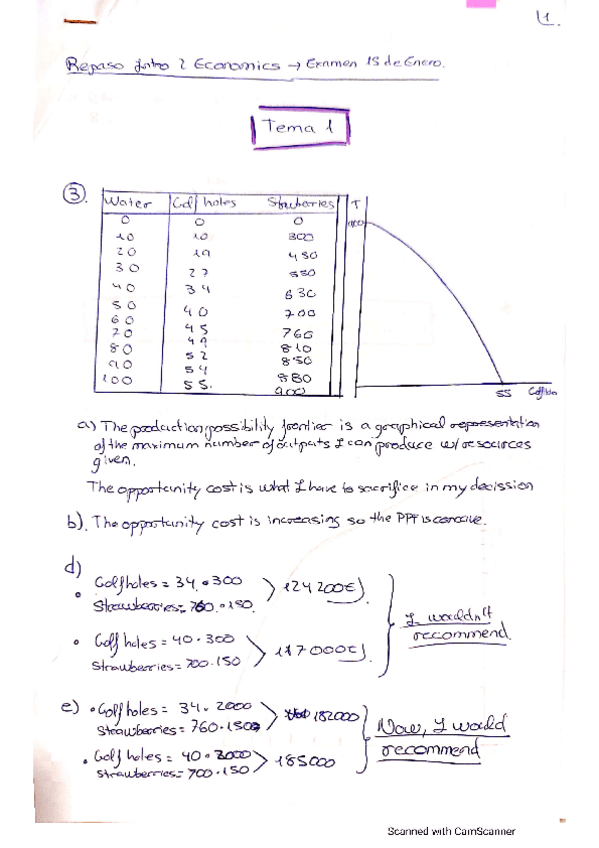 1.
Repaso Intro 2 Economics → Examen 15 de Enero.
Tema 1
③.
Water Golf holes Strawberries T
0 0 0 900
10 10 300
20 19 450
30 27 550
40 34 630
50 40 700
60 45 760
70 49 810
80 52 850
90 54 880
100 55. 900
55 Golf holes
a) The production possibility frontier is a graphical representation
of the maximum number of outputs I can produce w/ resources
given.
The opportunity cost is what I have to sacrifice in my decission
b). The opportunity cost is increasing so the PPF is concave.
d)
• Golf holes = 34 • 300
Strawberries = 760 • 150.
> 124200€
• Golf holes = 40 • 300
Strawberries = 700 • 150
> 117000€
I wouldn't
recommend
e) • Golf holes = 34 • 2000
Strawberries = 760 • 150
> 182000
• Golf holes = 40 • 2000
Strawberries = 700 • 150
> 185000
Now, I would
recommend
Scanned with CamScanner